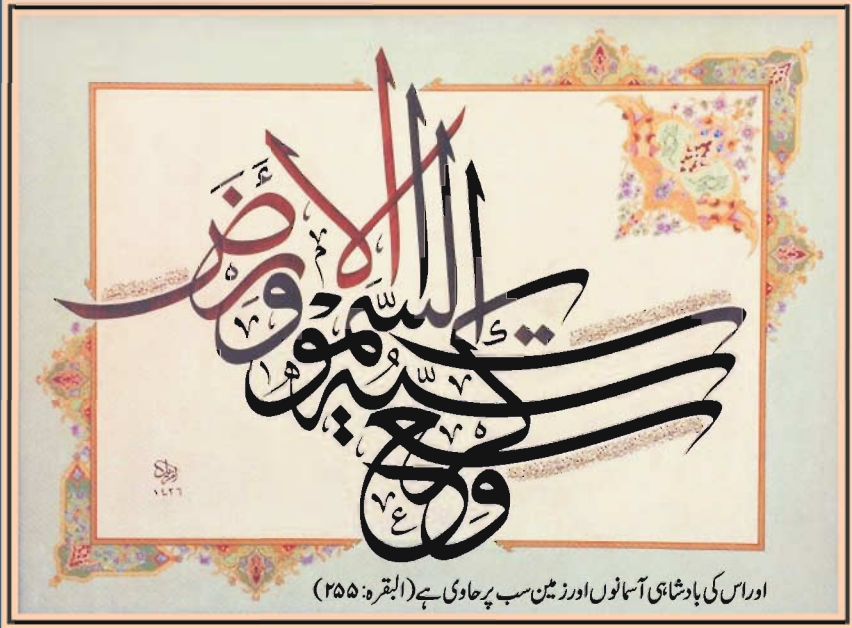 وسع كرسيه السموت والارض
١٤٢٦
اور اس کی بادشاہی آسمانوں اور زمین سب پر حاوی ہے (البقرہ: ۲۵۵)